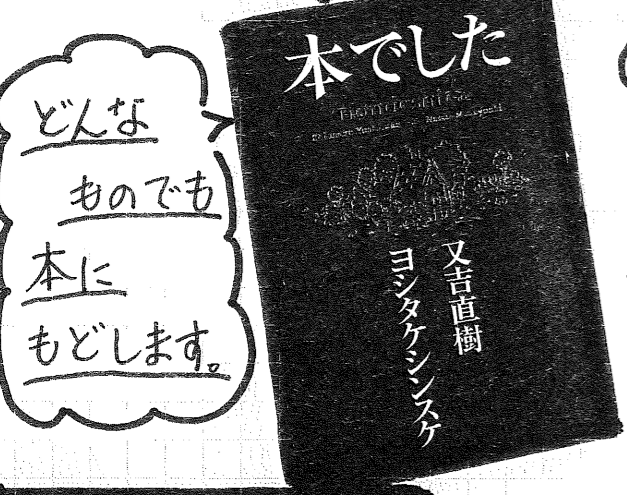 どんな
ものでも
本に
もどします。
本でした
又吉直樹
ヨシタケシンスケ